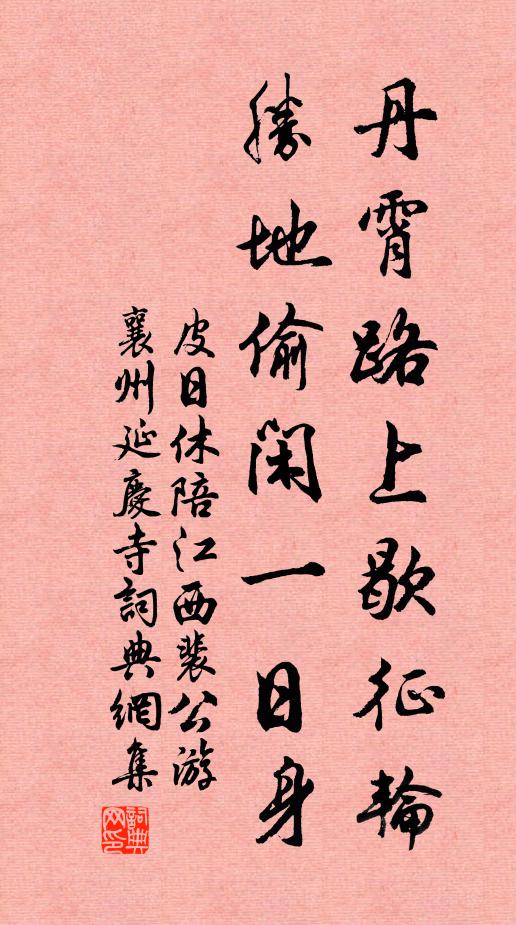 丹霄路上歇征輪
勝地偷閑一日身
皮日休陪江西裴公游
襄州延慶寺詞典網集
詞典
网印